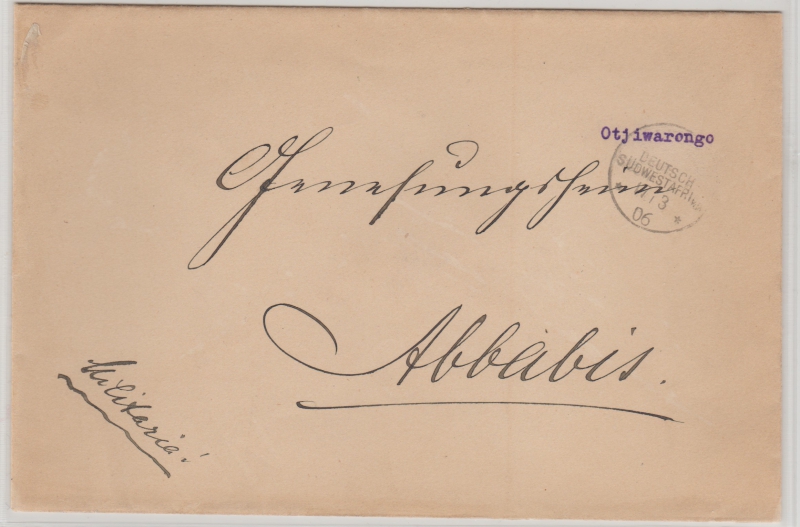 Otjiwarongo
DEUTSCH
SÜDWESTAFRIKA
3
06
Genesungsheim
Abbabis.
Militaria!